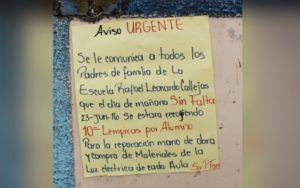 Aviso URGENTE
Se le comunica a todos los
Padres de familia de La
Escuela Rafael Leonardo Callejas
que el día de mañana Sin Falta
23-jun-16 Se estara recogiendo
10= Lempiras por Alumno
Para la reparación mano de obra
y compra de Materiales de la
Luz electrica de cada Aula